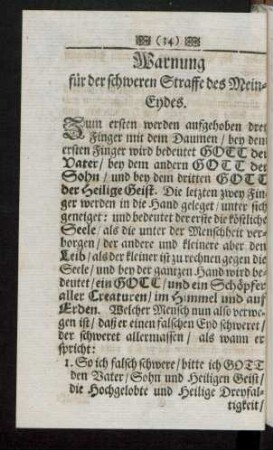 (14)
Warnung
für der schweren Straffe des Mein-
Eydes.
Zum ersten werden aufgehoben drei
Finger mit dem Daumen / bey dem
ersten Finger wird bedeutet GOTT der
Vater / bey dem andern GOTT der
Sohn / und bey dem dritten GOTT
der Heilige Geist. Die letzten zwey Fin-
ger werden in die Hand geleget / unter sich
geneiget: und bedeutet der erste die köstliche
Seele / als die unter der Menschheit ver-
borgen / der andere und kleinere aber den
Leib / als der kleiner ist zu rechnen gegen die
Seele / und bey der gantzen Hand wird be-
deutet / ein GOTT / und ein Schöpfer
aller Creaturen / im Himmel und auf
Erden. Welcher Mensch nun also verwe-
gen ist / daß er einen falschen Eyd schweret /
der schweret allermassen / als wann er
spricht:
1. So ich falsch schwere / bitte ich GOTT
den Vater / Sohn und Heiligen Geist /
die Hochgelobte und Heilige Dreyfal-
tigkeit /